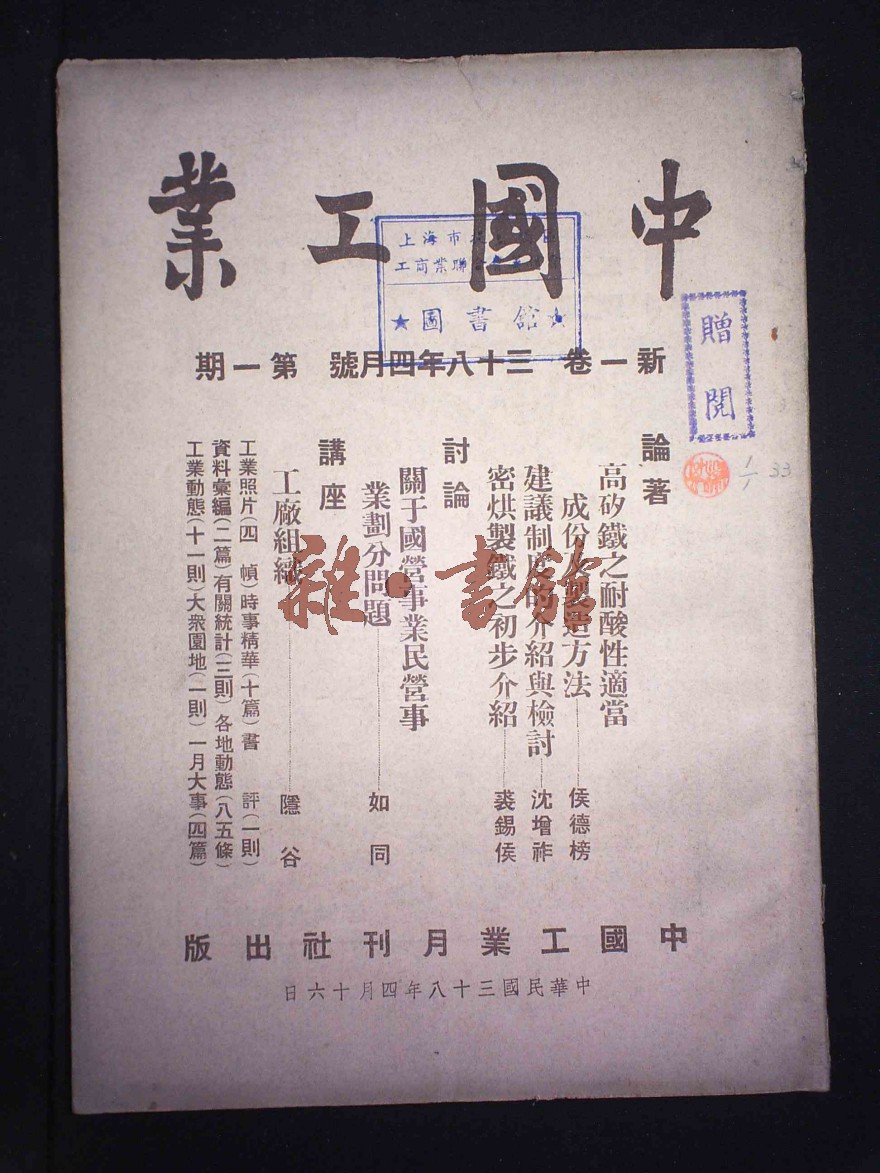 中國工業
上海市
工商業聯
圖書館
贈閱
新一卷 三十八年四月號 第一期
論著
高矽鐵之耐酸性適當
成份及製造方法 侯德榜
建議制度的介紹與檢討 沈增祚
密烘製鐵之初步介紹 裘錫侯
討論
關于國營事業民營事
業劃分問題 如同
講座
工廠組織 隱谷
工業照片(四幀)時事精華(十篇)書評(一則)
資料彙編(二篇)有關統計(三則)各地動態(八五條)
工業動態(十一則)大衆園地(一則)一月大事(四篇)
中國工業月刊社出版
中華民國三十八年四月十六日
雜·書館
1/1 33